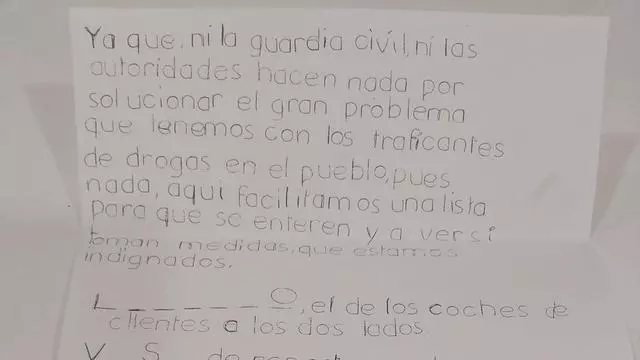 Ya que, ni la guardia civil, ni las
autoridades hacen nada por
solucionar el gran problema
que tenemos con los traficantes
de drogas en el pueblo, pues
nada, aquí facilitamos una lista
para que se enteren y a ver si
toman medidas, que estamos
indignados.
L _ _ _ _ _ O, el de los coches de
clientes a los dos lados
V S de